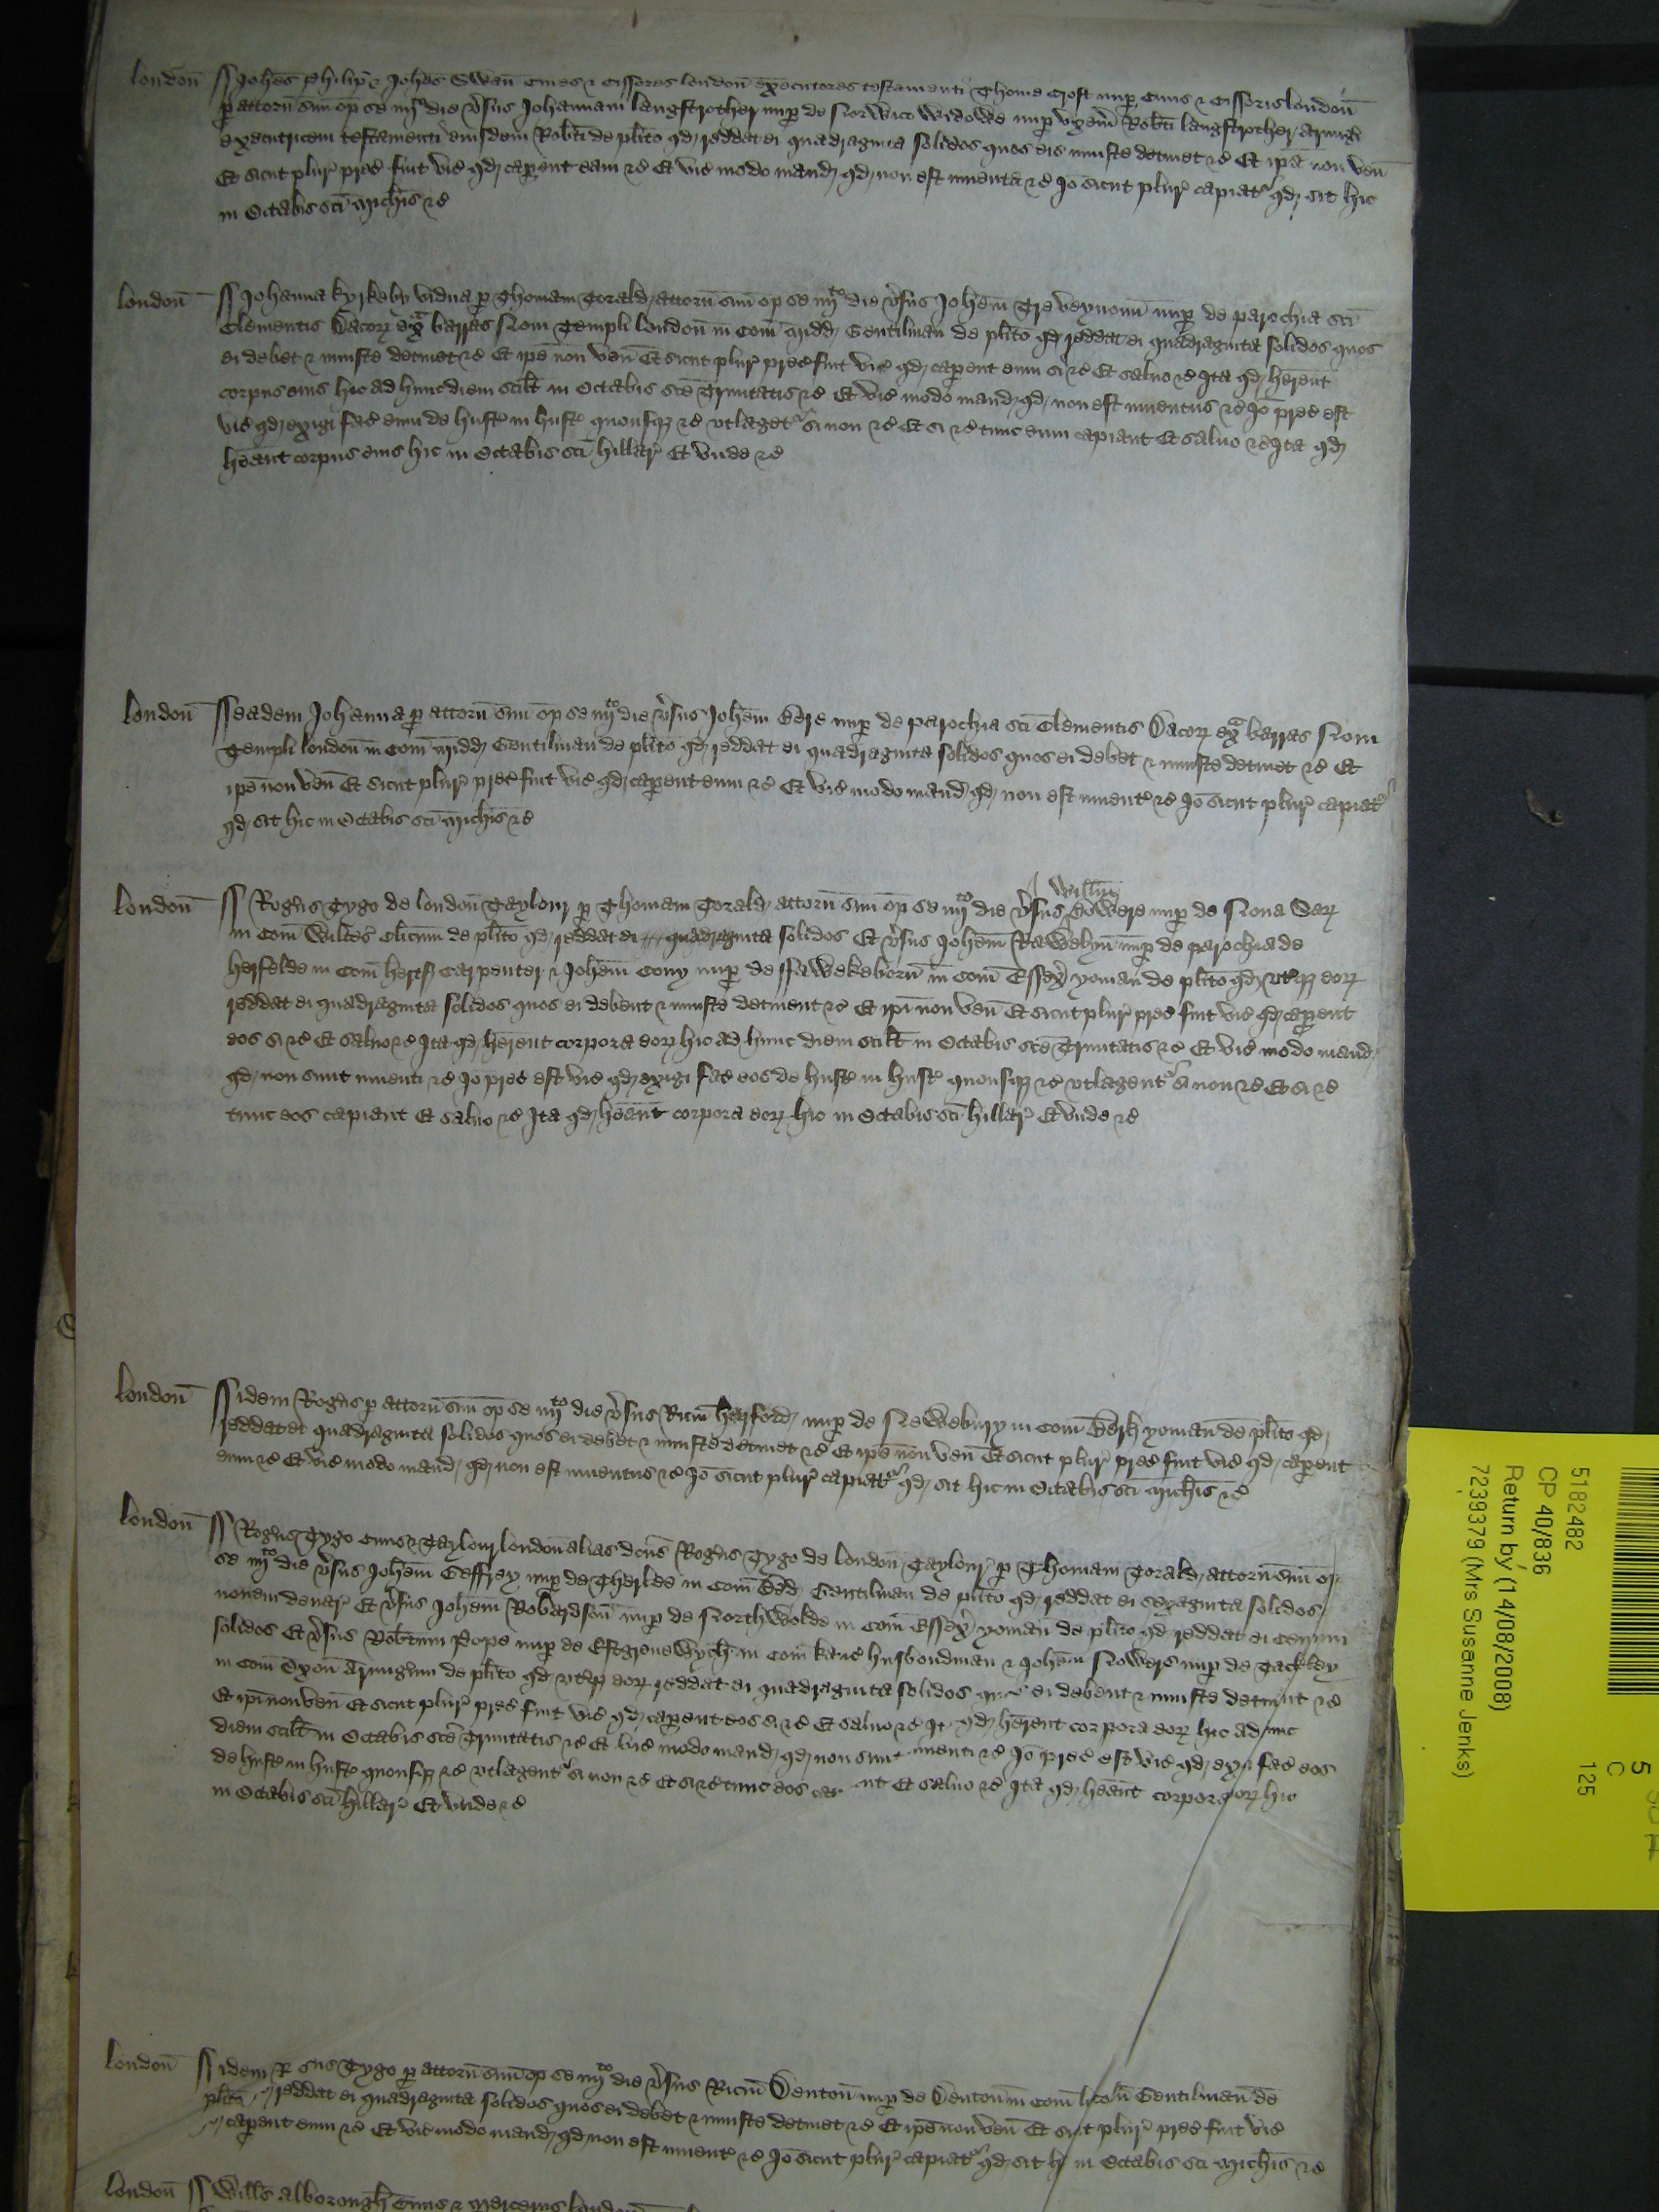 london Joh̄es Philip̄ & Joh̄es Swan̄ Ciues & Cissores london̄ executores testamenti Thome Croft nup̱ Ciuis & Cissoris london̄
p̱ attorn̄ suū op̄ se iiijto die v̓sus Johannam langstrother nup̱ de Norwico Wedowe nup̱ vxem̄ Rob̄ti langstrother Armig̓i
executricem testamenti eiusdem Rob̄ti de pl̄ito qd̄ reddat ei quadraginta solidos quos eis iniuste detinet &c̄ Et ip̄a non ven̄
Et sicut plur̓ prec̄ fuit vic̄ qd̄ cap̱ent eam &c̄ Et vic̄ modo mand̄ qd̄ non est inuenta &c̄ Jō sicut plur̓ capiat̓ qd̄ sit hic
in Octabis sc̄i Mich̄is &c̄
london̄ Johanna kyrkeby vidua p̱ Thomam Torald attorn̄ suū op̄ se iiijto die v̓sus Joh̄em nup̱ de parochia sc̄i
Clementis Dacoꝝ exa barras Noui Templi london̄ in Com̄ Midd̄ Gentilman de pl̄ito qd̄ reddat ei quadraginta solidos quos
ei debet & iniuste detinet &c̄ Et ip̄e non ven̄ Et sicut plur̓ prec̄ fuit vic̄ qd̄ cap̱ent eum si &c̄ Et saluo &c̄ Ita qd̄ h̄erent
corpus eius hic ad hunc diem scilt̄ in Octabis sc̄e Trinitatis &c̄ Et vic̄ modo mand̄ qd̄ non est inuentus &c̄ Jō prec̄ est
vic̄ qd̄ exigi fac̄ eum de hust̓ in hust̓ quousqꝫ &c̄ vtlaget̓ si non &c̄ Et si &c̄ tunc eum capiant Et saluo &c̄ Ita qd̄
h̄eant corpus eius hic in Octabis sc̄i hillar̓ Et vnde &c̄
london̄ Eadem Johanna p̱ attorn̄ suū op̄ se iiijto die v̓sus Joh̄em Bere nup̱ de parochia sc̄i Clementis Dacoꝝ exa barras Noui
Templi london̄ in Com̄ Midd̄ Gentilman de pl̄ito qd̄ reddat ei quadraginta solidos quos ei debet & iniuste detinet &c̄ Et
ip̄e non ven̄ Et sicut plur̓ prec̄ fuit vic̄ qd̄ cap̱ent eum &c̄ Et vic̄ modo mand̄ qd̄ non est inuent̓ &c̄ Jō sicut plur̓ capiat̓
qd̄ sit hic in Octabis sc̄i Mich̄is &c̄
Will̄m
london̄ Rog̓us Tygo de london̄ Taylour p̱ Thomam Torald attorn̄ suū op̄ se iiijto die v̓sus Bowere nup̱ de Noua Saꝝ
in Com̄ Wiltes̓ Cl̄icum de pl̄ito qd̄ reddat ei quadraginta solidos Et v̓sus Joh̄em Rawelyn̄ nup̱ de parochia de
herfelde in Com̄ hertf̄ Carpenter & Joh̄em Cony nup̱ de ffawkeborn̄ in Com̄ Essex̓ yoman̄ de pl̄ito qd̄ vt̓qꝫ eoꝝ
reddat ei quadraginta solidos quos ei debent & iniuste detinent &c̄ Et ip̄i non ven̄ Et sicut plur̓ prec̄ fuit vic̄ qd̄ cap̱ent
eos si &c̄ Et saluo &c̄ Ita qd̄ h̄erent corpora eoꝝ hic ad hunc diem scilt̄ in Octabis sc̄e Trinitatis &c̄ Et vic̄ modo mand̄
qd̄ non sunt inuenti &c̄ Jō prec̄ est vic̄ qd̄ exigi fac̄ eos de hust̓ in hust̓ quousqꝫ &c̄ vtlagent̓ si non &c̄ Et si &c̄
tunc eos capiant Et saluo &c̄ Ita qd̄ h̄eant corpora eoꝝ hic in Octabis sc̄i hillar̓ Et vnde &c̄
london̄ Idem Rog̓us p̱ attorn̄ suū op̄ se iiijto die v̓sus Ric̄m nup̱ de Newebury in Com̄ Berk̄ yoman̄ de pl̄ito qd̄
reddat ei quadraginta solidos quos ei debet & iniuste detinet &c̄ Et ip̄e non ven̄ Et sicut plur̓ prec̄ fuit vic̄ qd̄ cap̱ent
eum &c̄ Et vic̄ modo mand̄ qd̄ non est inuentus &c̄ Jō sicut plur̓ capiat̓ qd̄ sit hic in Octabis sc̄i Mich̄is &c̄
london̄ Rog̓us Tygo Ciuis & Taylour london̄ alias dc̄us Rog̓us Tygo de london̄ Taylour p̱ Thomam Torald attorn̄ suū op̄
se iiijto die v̓sus Joh̄em Geffrey nup̱ de Therlee in Com̄ Bed̄ Gentilman de pl̄ito qd̄ reddat ei sexaginta solidos
nouem denar̓ Et v̓sus Joh̄em Robardson̄ nup̱ de Northwolde in Com̄ Essex̓ yoman̄ de pl̄ito qd̄ reddat ei centum
solidos Et v̓sus Rob̄tum Pope nup̱ de Estgrenewych̄ in Com̄ kanc̄ husbondman & Joh̄em Nowers nup̱ de Tackley
in Com̄ Oxon̄ Armig̓um de pl̄ito qd̄ vt̓qꝫ eoꝝ reddat ei quadraginta solidos quos ei debent & iniuste detinent &c̄
Et ip̄i non ven̄ Et sicut plur̓ prec̄ fuit vic̄ qd̄ cap̱ent eos si &c̄ Et saluo &c̄ It qd̄ h̄erent corpora eoꝝ hic ad hunc
diem scilt̄ in Octabis sc̄e Trinitatis &c̄ Et vic̄ modo mand̄ qd̄ non sunt inuenti &c̄ Jō prec̄ est vic̄ qd̄ exigi fac̄ eos
de hust̓ in hust̓ quousqꝫ &c̄ vtlagent̓ si non &c̄ Et si &c̄ tunc eos capiant Et saluo &c̄ Ita qd̄ h̄eant corpora eoꝝ hic
in Octabis sc̄i hillar̓ Et vnde &c̄
london̄ Idem Rog̓us Tygo p̱ attorn̄ suū op̄ se iiijto die v̓sus Ric̄m Denton̄ nup̱ de Denton̄ in Com̄ lincoln̄ Gentilman̄ de
pl̄ito reddat ei quadraginta solidos quos ei debet & iniuste detinet &c̄ Et ip̄e non ven̄ Et sicut plur̓ prec̄ fuit vic̄
cap̱ent eum &c̄ Et vic̄ modo mand̄ qd̄ non est inuent̓ &c̄ Jō sicut plur̓ capiat̓ qd̄ sit h in Octabis sc̄i Mich̄is &c̄
london̄ Will̄s Alborough̄ Ciuis & Mercerus london̄
5182482
CP 40/836
Return by (14/08/2008)
7239379 (Mrs Susanne Jenks)
5
C
125